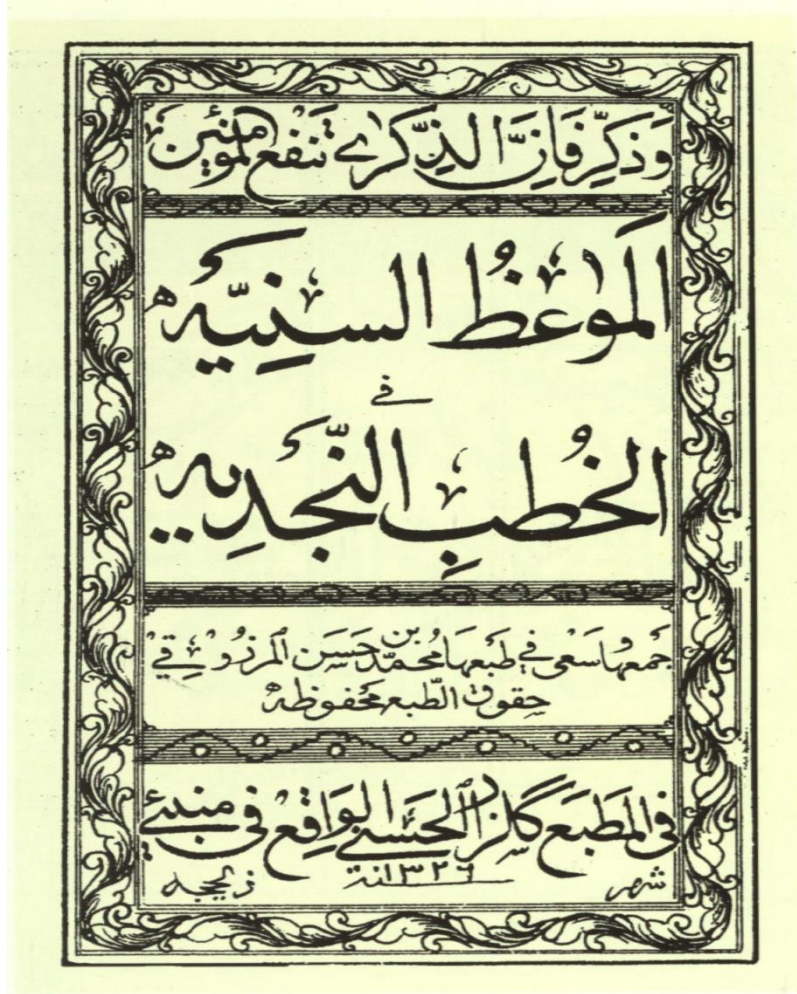 وَذَكِّرْ فَاِنَّ الذِّكْرٰے تَنْفَعُ الْمُؤْمِنِيْنَ
المَوٰعِظُ السنِيَّه
في
الخُطبِ النَّجْدِيه
جمعها وسعى في طبعها محمّد بن حسن المرزوقي
حقوق الطبع محفوظه
في المطبع گلزار الحسني الواقع في منبئي
شهر ذي الحجه سنة ١٣٢٦